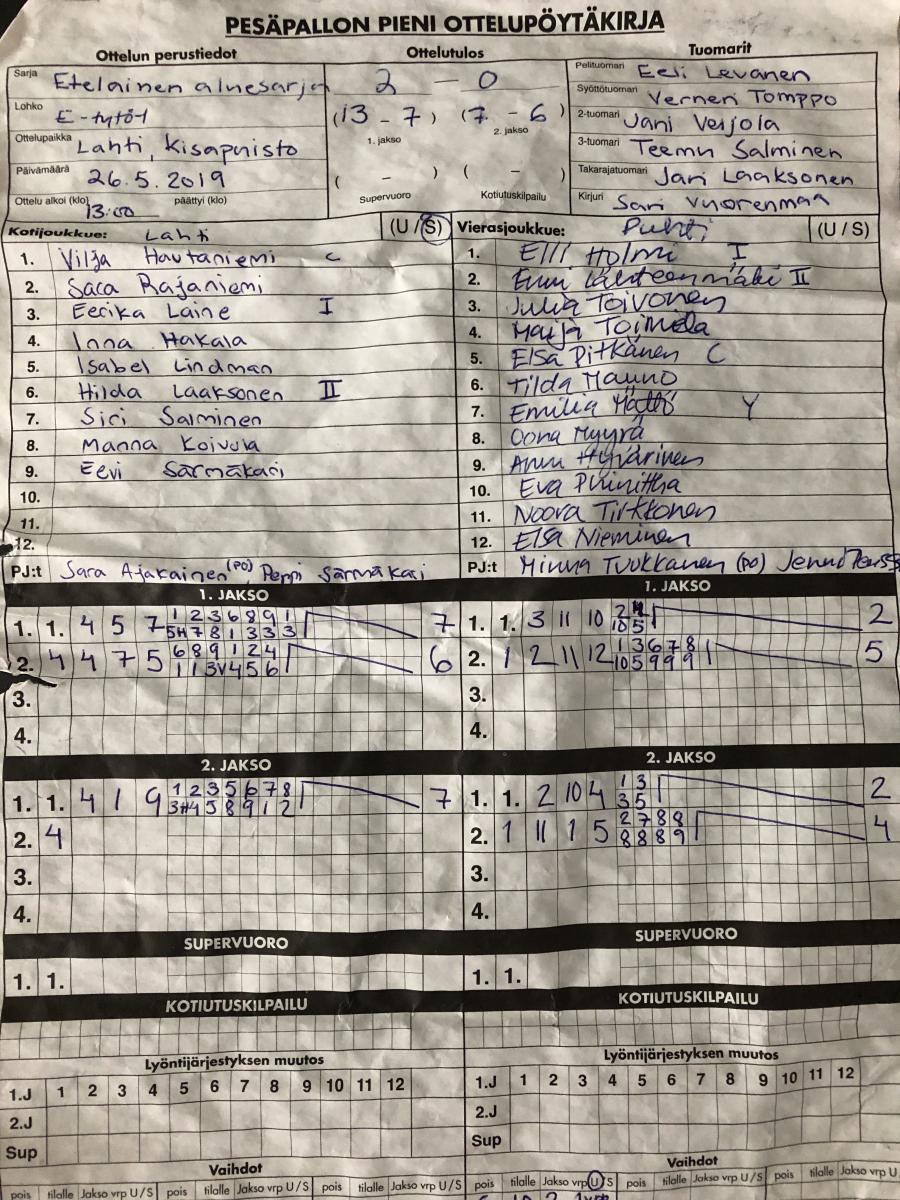 PESÄPALLON PIENI OTTELUPÖYTÄKIRJA
Ottelun perustiedot
Sarja Eteläinen aluesarja
Lohko E-tytöt
Ottelupaikka Lahti, Kisapuisto
Päivämäärä 26.5.2019
Ottelu alkoi (klo) 13:00 päättyi (klo)
Ottelutulos
2 – 0
(13 – 7) (7 – 6)
1. jakso 2. jakso
( – ) ( – )
Supervuoro Kotiutuskilpailu
Tuomarit
Pelituomari Eeli Levanen
Syöttötuomari Verneri Tomppo
2-tuomari Jani Veijola
3-tuomari Teemu Salminen
Takarajatuomari Jari Laaksonen
Kirjuri Sari Vuorenmaa
Kotijoukkue: Lahti (U / S)
1. Vilja Hautaniemi C
2. Saca Rajaniemi
3. Eerika Laine I
4. Inna Hakala
5. Isabel Lindman
6. Hilda Laaksonen II
7. Siri Salminen
8. Manna Koivula
9. Eevi Särmäkari
10.
11.
12.
PJ:t Sara Ajakainen (PO), Peppi Särmäkari
Vierasjoukkue: Puhti (U / S)
1. Elli Holmi I
2. Emmi Lähteenmäki II
3. Julia Toivonen
4. Maija Toimela
5. Elsa Pitkänen C
6. Tilda Mauno
7. Emilia Mättö Y
8. Oona Myyrä
9. Anni Hyvärinen
10. Eva
11. Noora Tirkkonen
12. Elsa Nieminen
PJ:t Minna Tuukkanen (PO) Jenni
1. JAKSO
1. 1. 4 5 7 1 2 3 6 8 9 1 7
5H 7 8 1 3 3 3
2. 4 4 7 5 6 8 9 1 2 4 6
1 1 3V 4 5 6
3.
4.
1. JAKSO
1. 1. 3 11 10 2 4 2
10 5
2. 1 2 11 12 1 3 6 7 8 5
10 5 9 9 9
3.
4.
2. JAKSO
1. 1. 4 1 9 1 2 3 5 6 7 8 7
3H 4 5 8 9 1 2
2. 4
3.
4.
2. JAKSO
1. 1. 2 10 4 1 3 2
3 5
2. 1 11 1 5 2 7 8 8 4
8 8 8 9
3.
4.
SUPERVUORO
1. 1.
SUPERVUORO
1. 1.
KOTIUTUSKILPAILU
KOTIUTUSKILPAILU
Lyöntijärjestyksen muutos
1.J 1 2 3 4 5 6 7 8 9 10 11 12
2.J
Sup
Lyöntijärjestyksen muutos
1.J 1 2 3 4 5 6 7 8 9 10 11 12
2.J
Sup
Vaihdot
pois tilalle Jakso vrp U / S pois tilalle Jakso vrp U / S pois tilalle Jakso vrp U / S
Vaihdot
pois tilalle Jakso vrp U / S pois tilalle Jakso vrp U / S pois tilalle Jakso vrp U